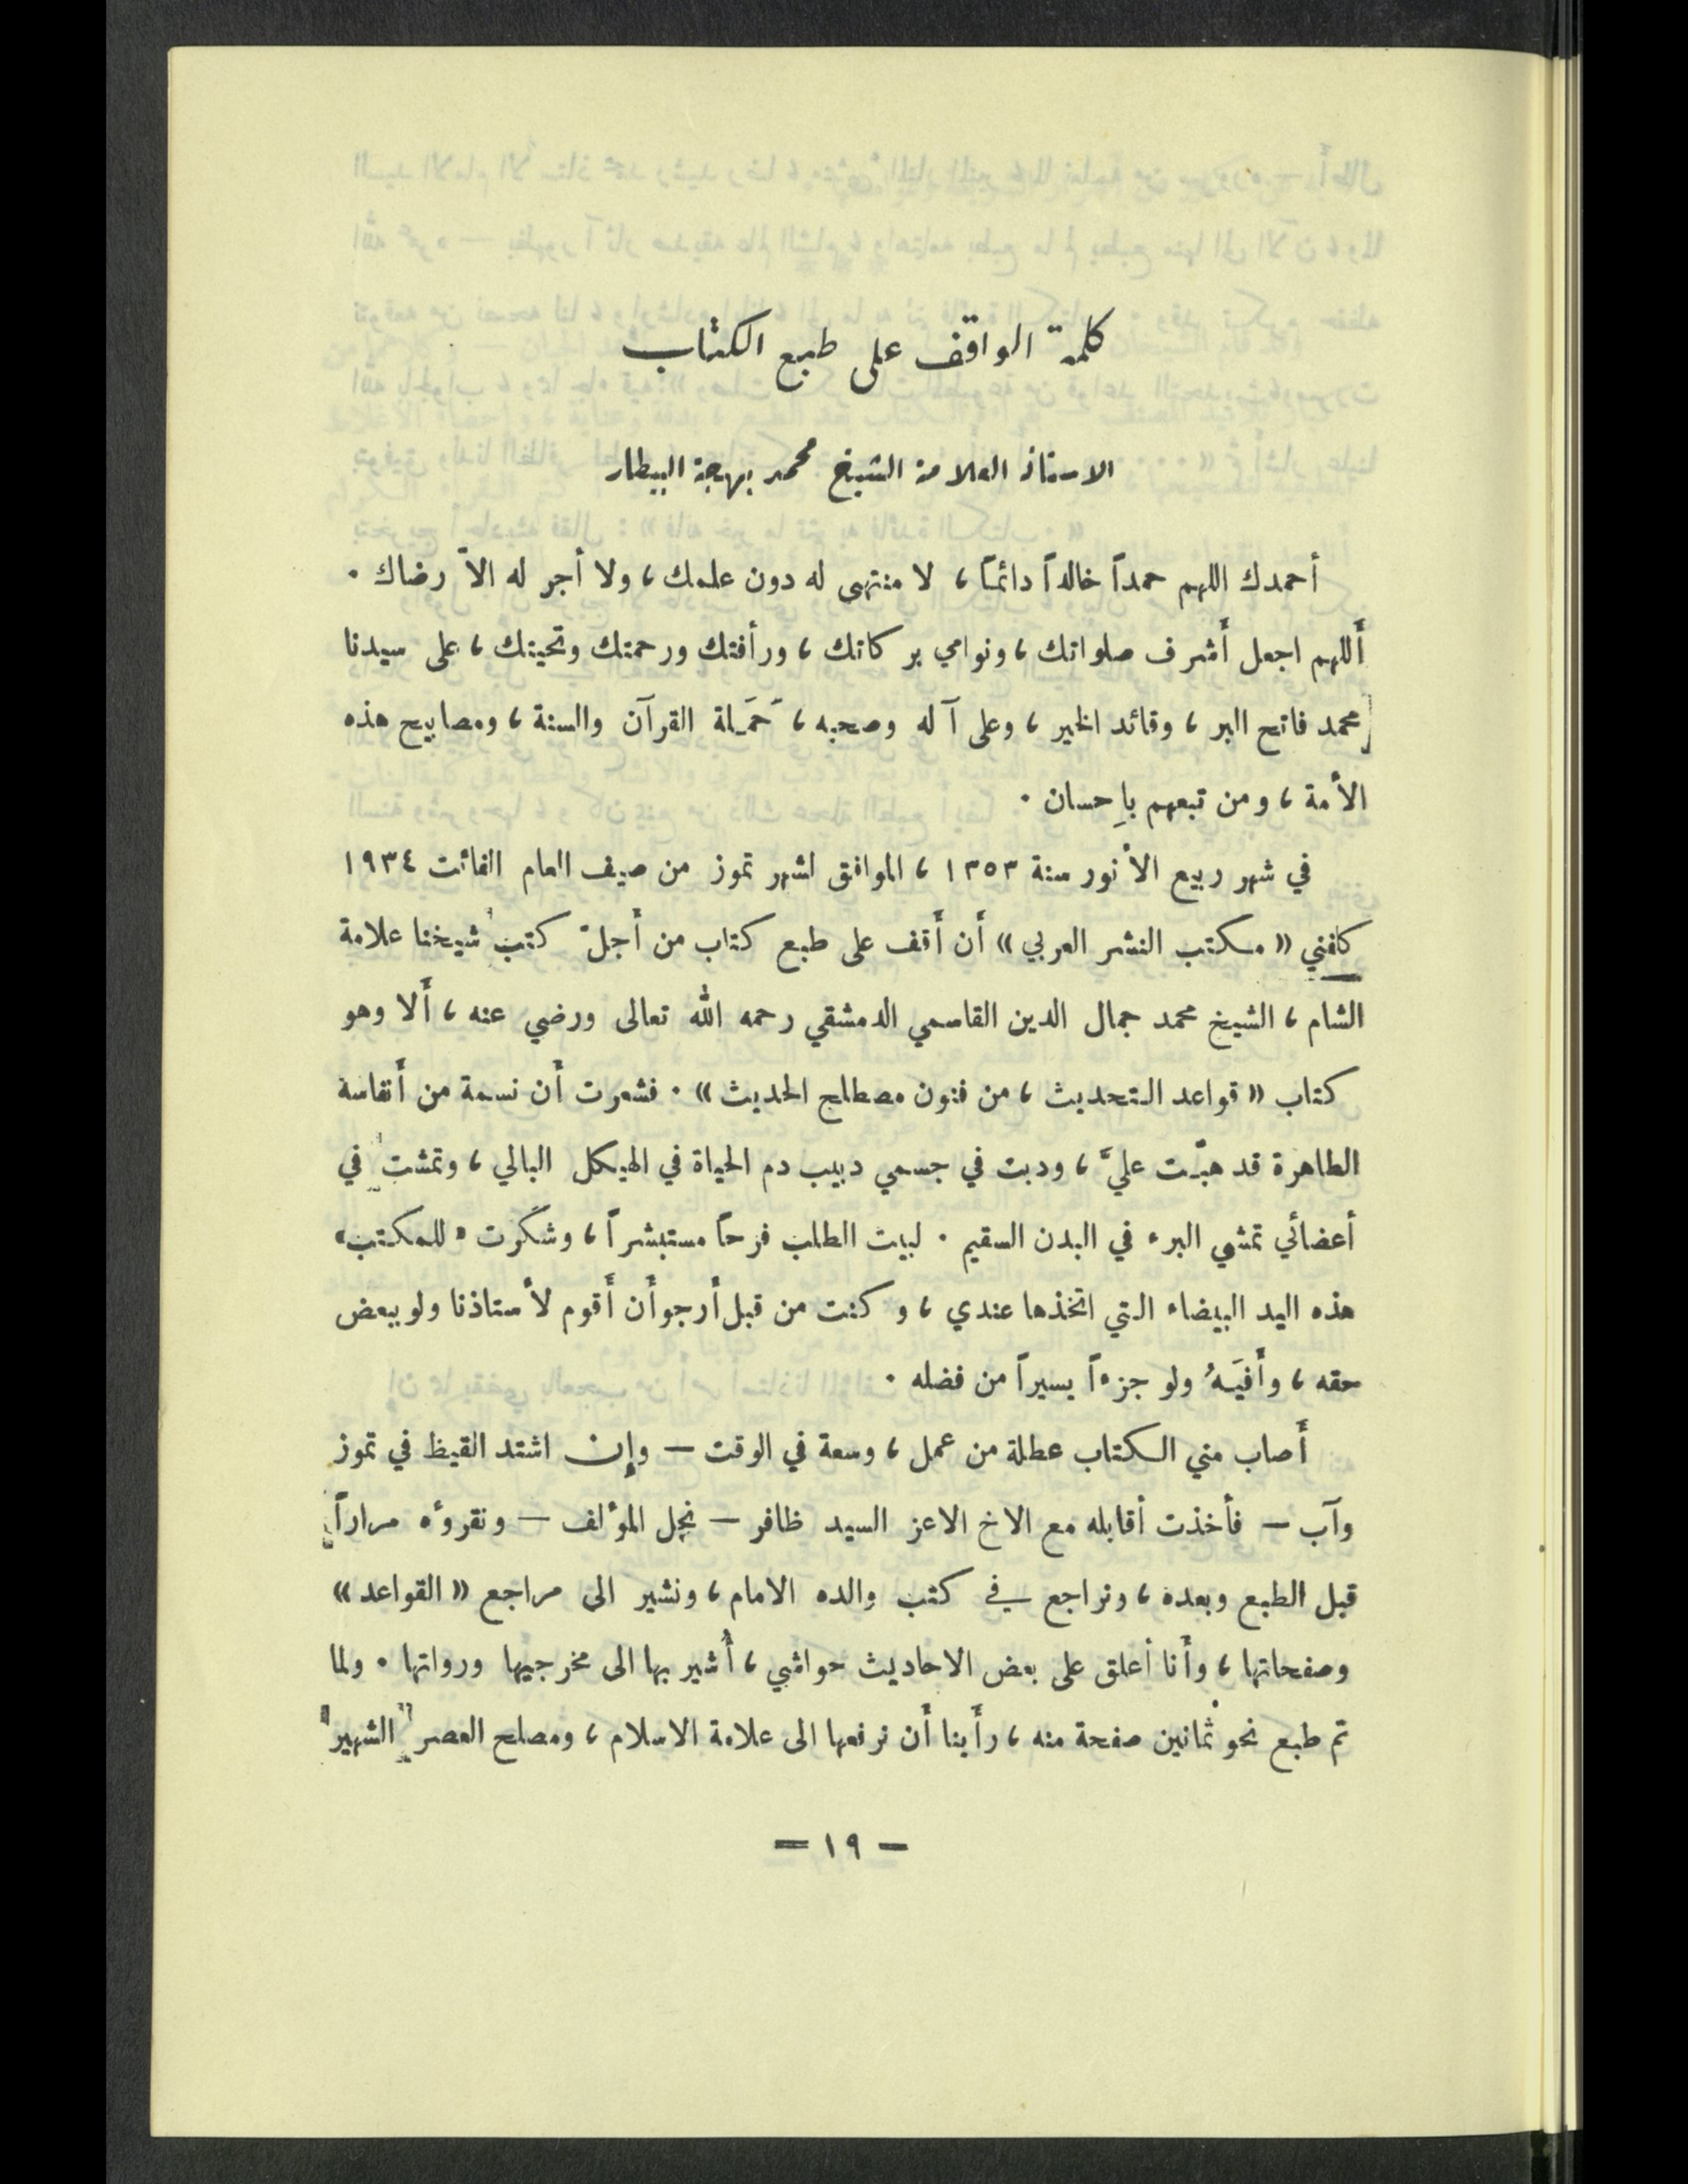 كلمة الواقف على طبع الكتاب
الاستاذ العلامة الشيخ محمد بهجة البيطار
أحمدك اللهم حمداً خالداً دائماً ، لا منتهى له دون علمك ، ولا أجر له الاّ رضاك .
أَللهم اجعل أَشرف صلواتك ، ونوامي بركاتك ، ورأفتك ورحمتك وتحيتك ، على سيدنا
محمد فاتح البر ، وقائد الخير ، وعلى آله وصحبه ، حَمَلة القرآن والسنة ، ومصابيح هذه
الأمة ، ومن تبعهم بإحسان .
في شهر ربيع الأنور سنة ١٣٥٣ ، الموافق لشهر تموز من صيف العام الفائت ١٩٣٤
كلفني « مكتب النشر العربي » أَن أَقف على طبع كتاب من أَجلّ كتب شيخنا علامة
الشام ، الشيخ محمد جمال الدين القاسمي الدمشقي رحمه الله تعالى ورضي عنه ، أَلا وهو
كتاب « قواعد التحديث ، من فنون مصطلح الحديث » . فشعرت أَن نسمة من أَنفاسه
الطاهرة قد هبّت عليَّ ، ودبت في جسمي دبيب دم الحياة في الهيكل البالي ، وتمشت في
أعضائي تمشي البرء في البدن السقيم . لبيت الطلب فرحاً مستبشراً ، وشكرت « للمكتب »
هذه اليد البيضاء التي اتخذها عندي ، وكنت من قبل أرجو أَن أَقوم لأستاذنا ولو ببعض
حقه ، وأَفيَهُ ولو جزءاً يسيراً من فضله .
أَصاب مني الكتاب عطلة من عمل ، وسعة في الوقت — وإن اشتد القيظ في تموز
وآب — فأخذت أقابله مع الاخ الاعز السيد ظافر — نجل المؤلف — ونقرؤه مراراً
قبل الطبع وبعده ، ونراجع في كتب والده الامام ، ونشير الى مراجع « القواعد »
وصفحاتها ، وأَنا أعلق على بعض الاحاديث حواشي ، أُشير بها الى مخرجيها ورواتها . ولما
تم طبع نحو ثمانين صفحة منه ، رأَينا أَن نرفعها الى علامة الاسلام ، ومصلح العصر الشهير
— ١٩ —